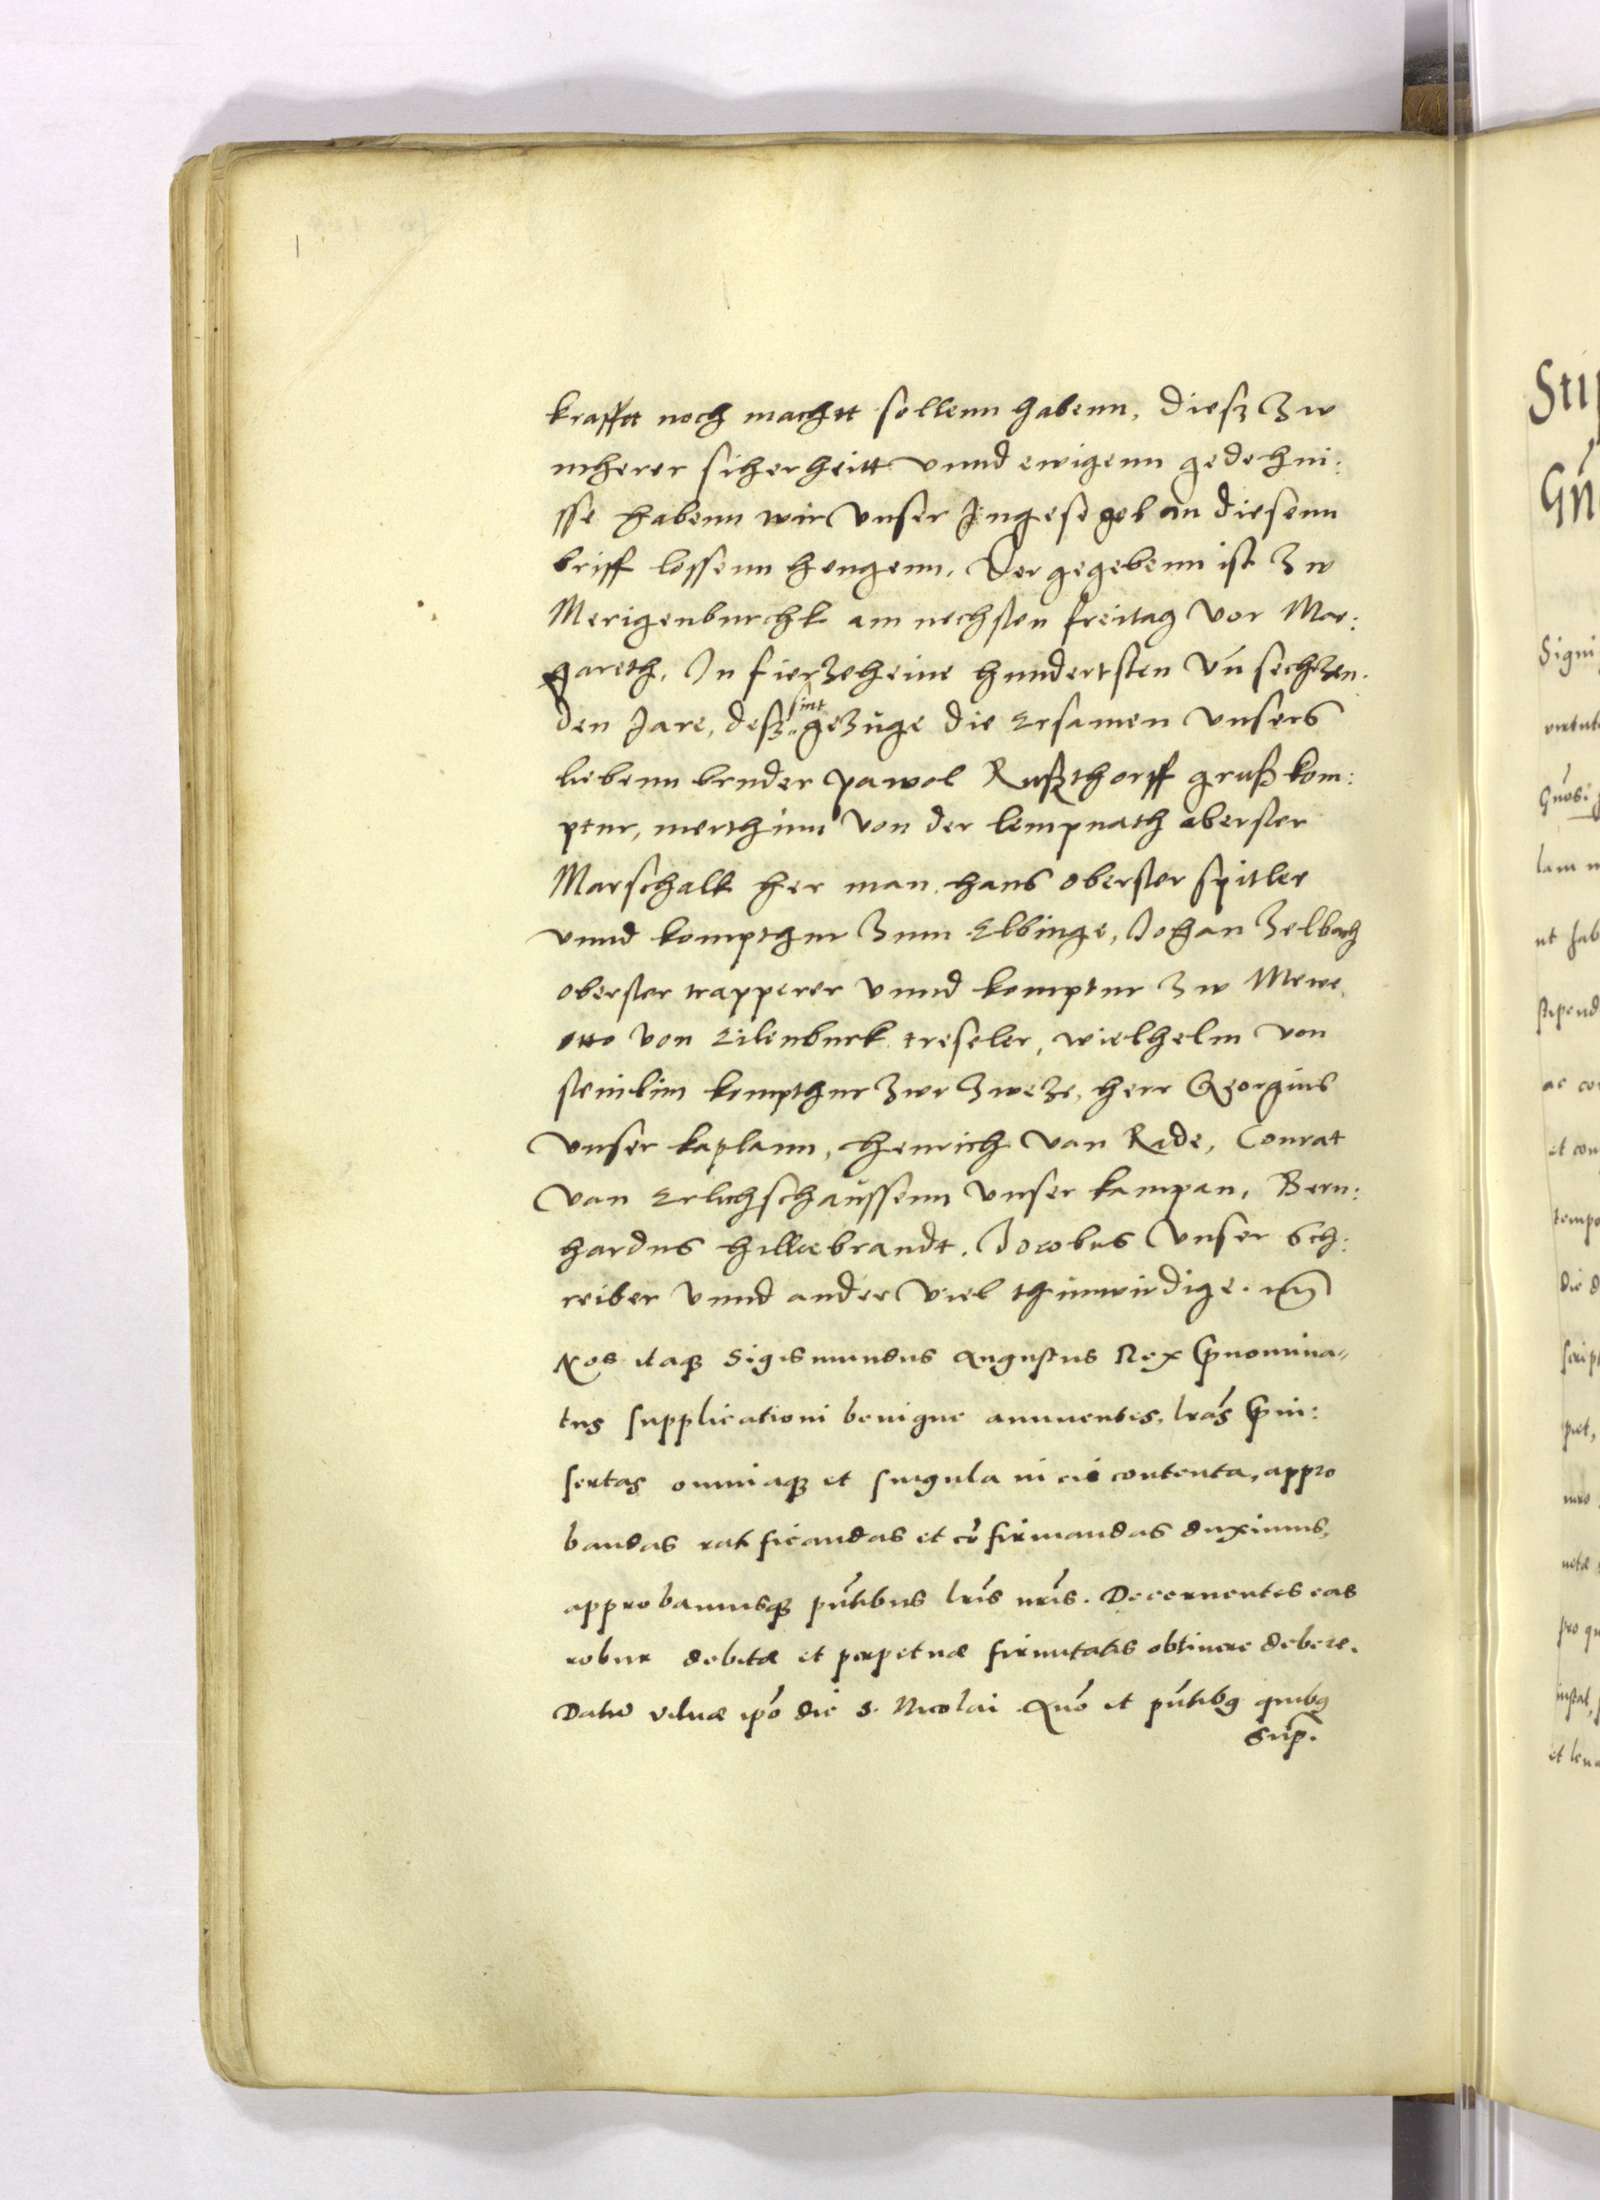 krafftt noch machtt sollenn habenn, diesz zw
mherer siherheitt vnnd ewigenn gedehni:
sse habenn wir vnser Ingesegel an diesenn
briff lossenn hengenn, der gegebenn ist zw
Merigenburchk am nechsten freitag vor Mar:
gareth, In fierzeheine hundertsten vn̄ sechzen.
den Jare, desz sint gezüge die Ersamen vnsers
liebenn bruder pawol Ruszthorff grusz kom:
ptur, merthinn von der kempnath oberster
Marschalk her man hans oberster spitler
vnnd kompthur zum Elbinge, Johan zelbach
oberster trapperer vnnd komptur zw Mewe,
otto von Eilenburk treseler, wielhelm von
steinlim kompthur zwr zweze, herr Georgius
vnser kaplann, henrich van Rade, Conrat
van Erlichschaüssenn vnser kampan, Bern:
hardus hillebrandt, Jocobus vnser sch:
reiber vnnd ander viel thruwirdige.
Nos itaq Sigismundus Augustus Rex prnomina-
tus supplicationi benigne annuentes, lrás prin:
sertas omniaq et singula in eis contenta, appro
bandas ratificandas et cō firmandas duximus,
approbamusq pn̄tibus lrīs nrīs. Decernentes eas
robur debitæ et perpetuæ firmitatis obtinere debere.
Datū vilnæ ipō die S. Nicolai Anō et pn̄tibq quibq
Sup̄.